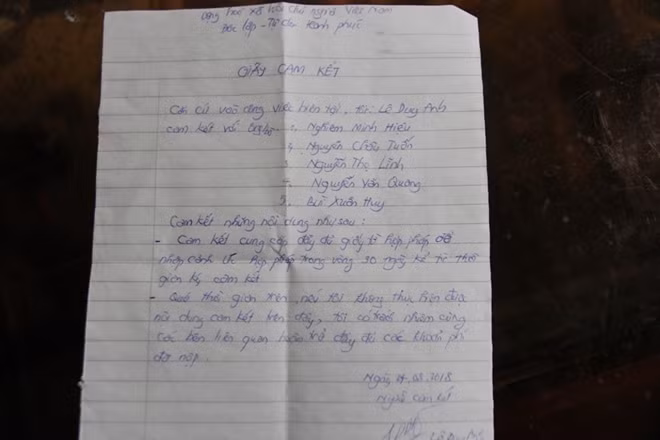 Cộng hoà xã hội chủ nghĩa Việt Nam
Độc lập - Tự do Hạnh phúc
GIẤY CAM KẾT
Căn cứ vào công việc hiện tại, tôi Lê Duy Anh
cam kết với 1, Nghiêm Minh Hiếu
2, Nguyễn Tuấn
3. Nguyễn Thọ Lĩnh
4. Nguyễn Văn Quang
5. Bùi Xuân Huy
Cam kết những nội dung như sau :
- Cam kết cung cấp đầy đủ giấy tờ hợp pháp để
nhập cảnh hợp pháp trong vòng 30 ngày kể từ thời
gian ký cam kết
- Quá thời gian trên, nếu tôi không thực hiện được
nội dung cam kết trên đây, tôi có trách nhiệm cùng
các bên liên quan hoàn trả đầy đủ các khoản phí
đã nộp.
Ngày .08.2018
Người cam kết